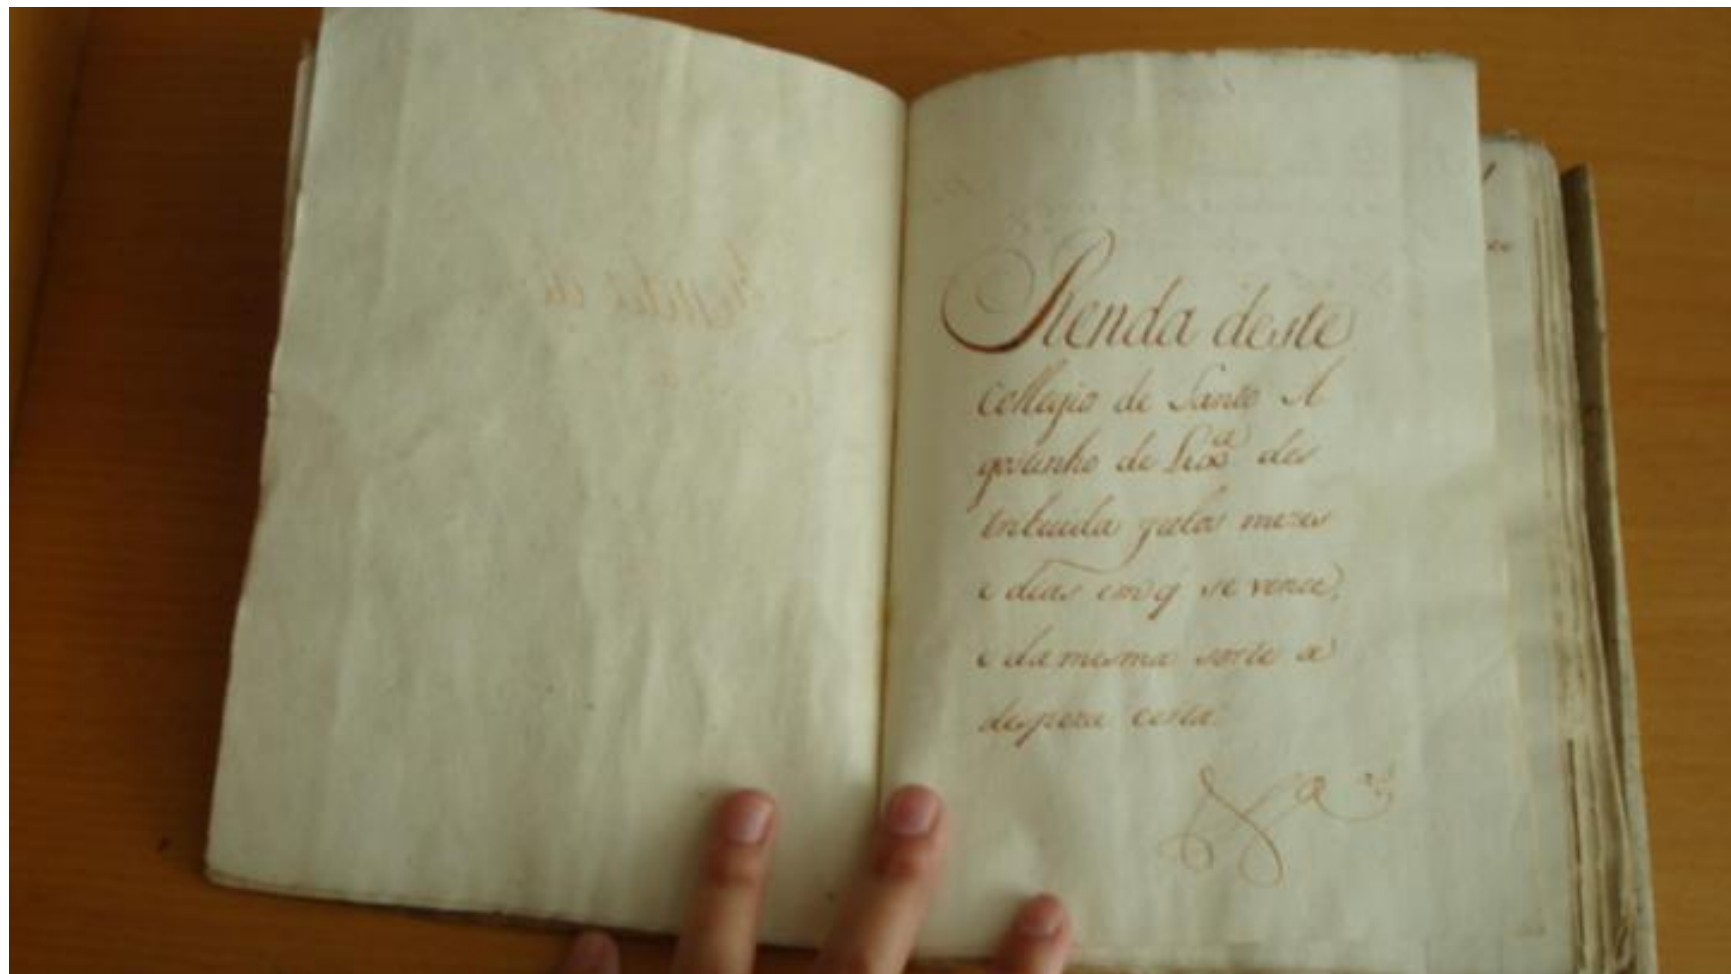 Renda deste
Collegio de Santo A
gostinho de Lxᵃ des
tribuida pelos mezes
e dias em q̃ se vence,
e da mesma sorte a
despeza certa.